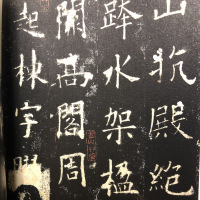 山抗殿絕
跨水架楹
開高閣周
起棟宇